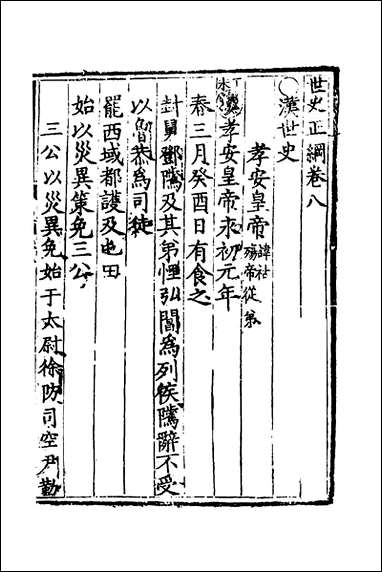 世史正綱卷八
〇漢世史
孝安皇帝諱
殤帝從
丁未孝安皇帝永初元年
春三月癸酉日有食之
封舅鄧騭及其弟悝弘閶為列侯騭辭不受
以魯恭為司徒
罷西域都護及屯田
始以災異策免三公
三公以災異免始于太尉徐防司空尹勤